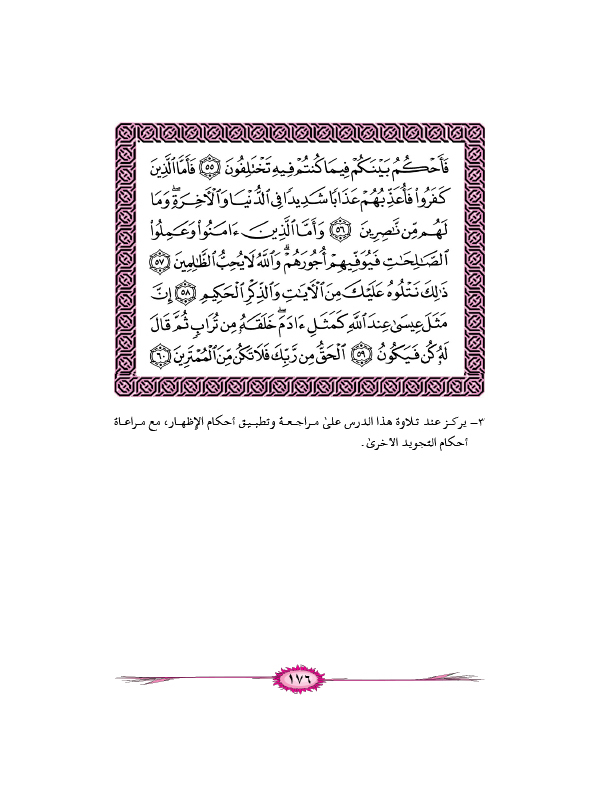 فَأَحْكُمُ بَيْنَكُمْ فِيمَا كُنتُمْ فِيهِ تَخْتَلِفُونَ ﴿٥٥﴾ فَأَمَّا الَّذِينَ
كَفَرُوا۟ فَأُعَذِّبُهُمْ عَذَابًا شَدِيدًا فِي الدُّنْيَا وَالْآخِرَةِ ۖ وَمَا
لَهُم مِّن نَّاصِرِينَ ﴿٥٦﴾ وَأَمَّا الَّذِينَ ءَامَنُوا۟ وَعَمِلُوا۟
الصَّـٰلِحَـٰتِ فَيُوَفِّيهِمْ أُجُورَهُمْ ۗ وَاللَّهُ لَا يُحِبُّ الظَّالِمِينَ ﴿٥٧﴾
ذَٰلِكَ نَتْلُوهُ عَلَيْكَ مِنَ الْآيَـٰتِ وَالذِّكْرِ الْحَكِيمِ ﴿٥٨﴾ إِنَّ
مَثَلَ عِيسَىٰ عِندَ اللَّهِ كَمَثَلِ ءَادَمَ ۖ خَلَقَهُۥ مِن تُرَابٍ ثُمَّ قَالَ
لَهُۥ كُن فَيَكُونُ ﴿٥٩﴾ الْحَقُّ مِن رَّبِّكَ فَلَا تَكُن مِّنَ الْمُمْتَرِينَ ﴿٦٠﴾
٣- يركز عند تلاوة هذا الدرس على مراجعة وتطبيق أحكام الإظهار، مع مراعاة
أحكام التجويد الأخرى.
١٧٦